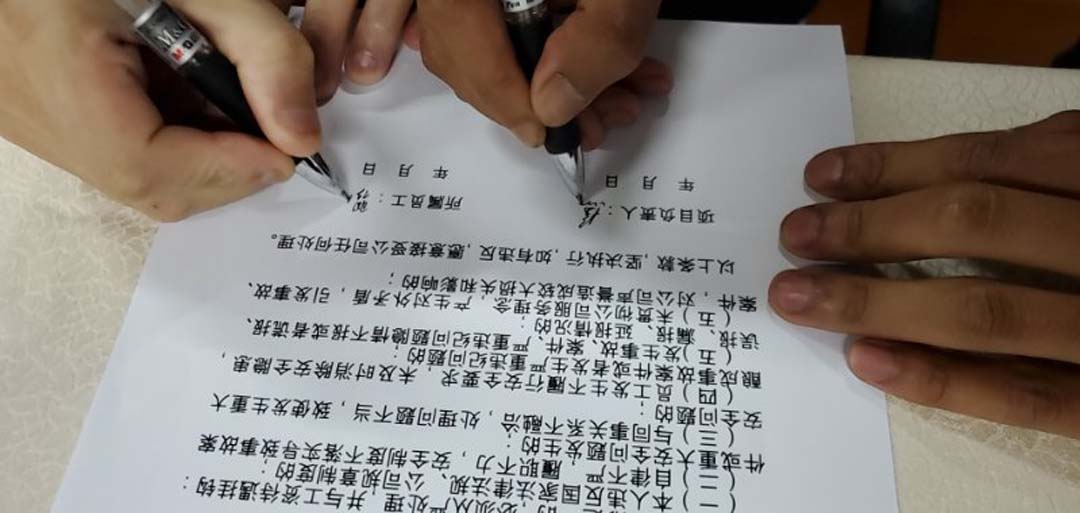 的，必须从严处理，并与工资待遇挂钩：
（一）本人违反国家法律法规、公司规章制度的：
（二）自律不严，履职不力，安全制度不落实导致事故案
件或重大安全问题发生的：
（三）与同事关系不融洽，处理问题不当，致使发生重大
安全问题的：
（四）员工发生不履行安全要求，未及时消除安全隐患，
酿成事故案件或者发生严重违纪问题的：
（五）发生事故、案件、严重违纪问题隐情不报或者谎报、
误报、漏报、延报情况的：
（五）未贯彻公司服务理念，产生对外矛盾，引发事故、
案件，对公司声誉造成较大损失和影响的；
以上条款，坚决执行，如有违反，愿意接受公司任何处理。
项目负责人： 所属员工：
年 月 日 年 月 日